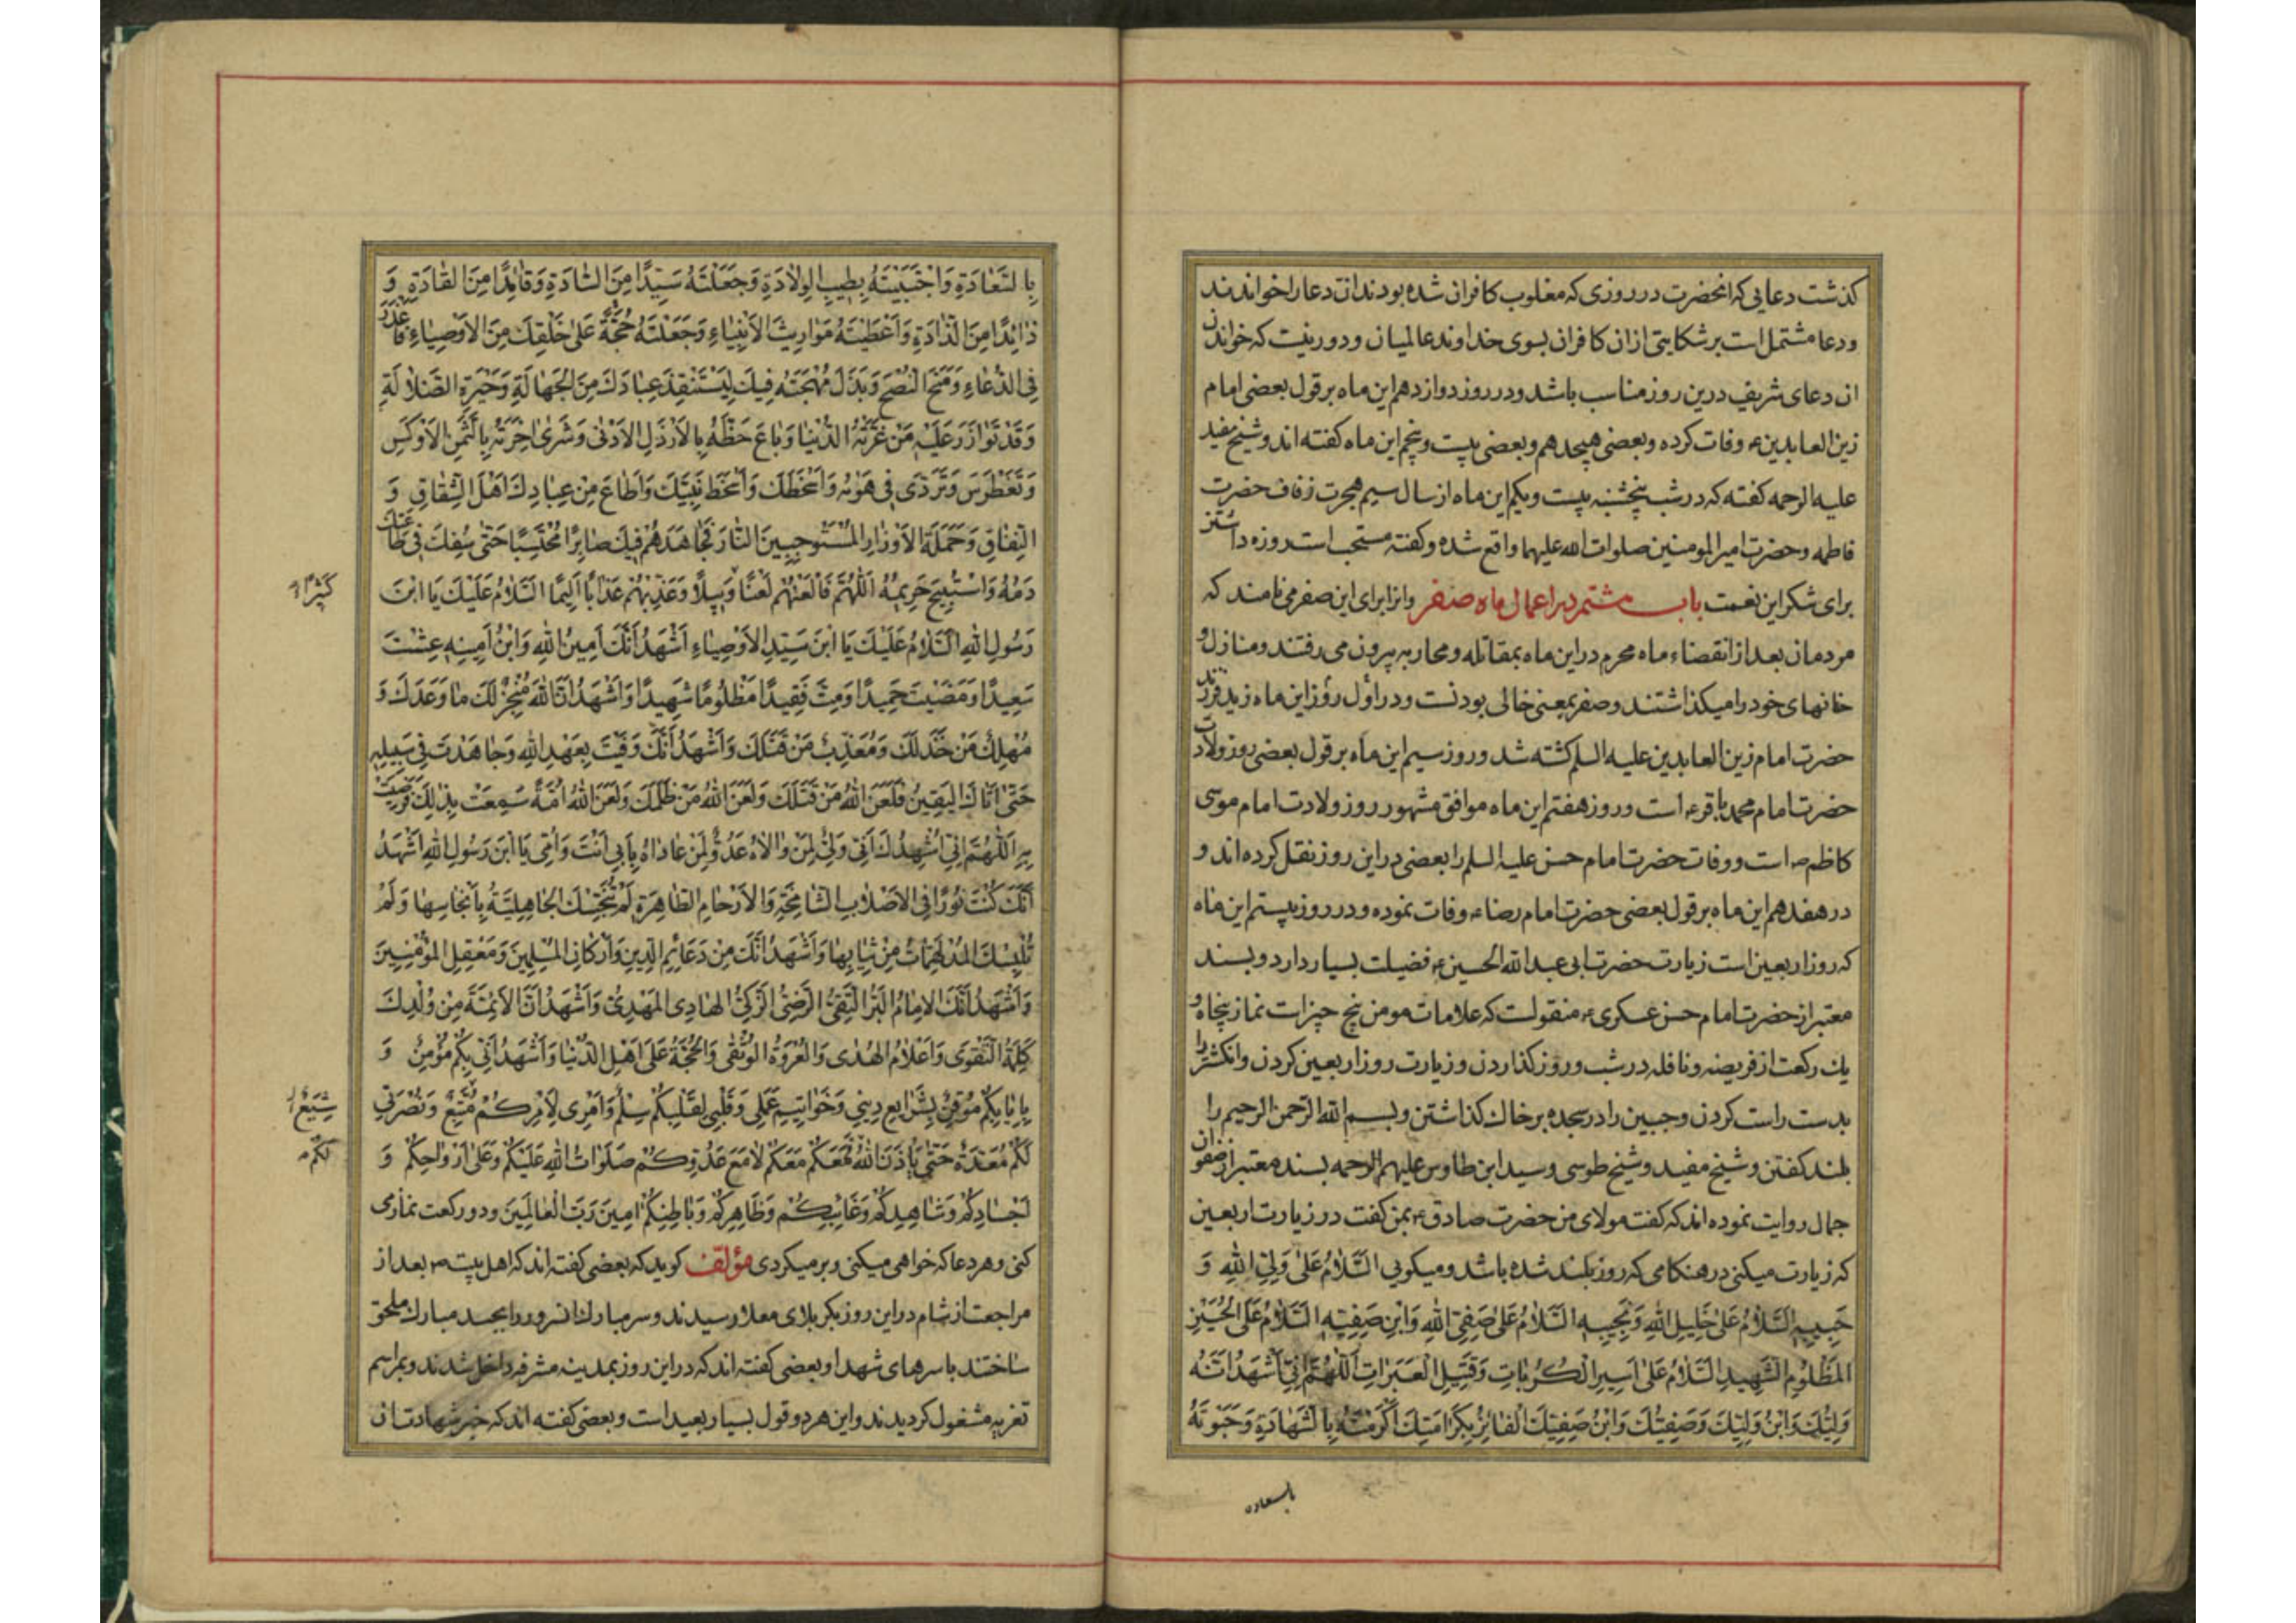 کذشت دعایی که انحضرت در روزی که مغلوب کافران شده بودند ان دعا را خواندند
ودعا مشتمل است بر شکایتی از ان کافران بسوی خداوند عالمیان و دور نیست که خواندن
ان دعای شریف درین روز مناسب باشد ودر روز دوازدهم این ماه بر قول بعضی امام
زین العابدین ع وفات کرده وبعضی هیجدهم وبعضی بیست وپنجم این ماه کفته اند وشیخ مفید
علیه الرحمه کفته که در شب پنجشنبه بیست ویکم این ماه از سال سیم هجرت زفاف حضرت
فاطمه وحضرت امیر المومنین صلوات الله علیهما واقع شده وکفته مستحب است روزه داشتن
برای شکر این نعمت باب هشتم در اعمال ماه صفر وانرا برای این صفر می نامند که
مردمان بعد از انقضاء ماه محرم در این ماه بمقاتله ومحاربه بیرون می رفتند ومنازل و
خانهای خود را میکذاشتند وصفر بمعنی خالی بودنست ودر اول روز این ماه زید فرزند
حضرت امام زین العابدین علیه السلم کشته شد وروز سیم این ماه بر قول بعضی روز ولادت
حضرت امام محمد باقر ع است وروز هفتم این ماه موافق مشهور روز ولادت امام موسی
کاظم ع است ووفات حضرت امام حسن علیه السلم را بعضی در این روز نقل کرده اند و
در هفدهم این ماه بر قول بعضی حضرت امام رضا ع وفات نموده ودر روز بیستم این ماه
که روز اربعین است زیارت حضرت ابی عبد الله الحسین ع فضیلت بسیار دارد وبسند
معتبر از حضرت امام حسن عسکری ع منقولست که علامات مومن پنج چیز است نماز پنجاه و
یك رکعت از فریضه ونافله در شب وروز کذاردن وزیارت روز اربعین کردن وانکشتر را
بدست راست کردن وجبین را در سجده بر خاك کذاشتن وبسم الله الرحمن الرحیم را
بلند کفتن وشیخ مفید وشیخ طوسی وسید ابن طاوس علیهم الرحمه بسند معتبر از صفوان
جمال روایت نموده اند که کفت مولای من حضرت صادق ع بمن کفت در زیارت اربعین
که زیارت میکنی در هنکامی که روز بلند شده باشد ومیکویی اَلسَّلامُ عَلى وَلِيِّ اللهِ وَ
حَبيبِهِ اَلسَّلامُ عَلى خَليلِ اللهِ وَنَجيبِهِ اَلسَّلامُ عَلى صَفِيِّ اللهِ وَابْنِ صَفِيِّهِ اَلسَّلامُ عَلَى الحُسَيْنِ
المَظْلُومِ الشَّهيدِ اَلسَّلامُ عَلى اَسيرِ الكُرُباتِ وَقَتيلِ العَبَراتِ اَللّهُمَّ اِنّي اَشْهَدُ اَنَّهُ
وَلِيُّكَ وَابْنُ وَلِيِّكَ وَصَفِيُّكَ وَابْنُ صَفِيِّكَ الفائِزُ بِكَرامَتِكَ اَكْرَمْتَهُ بِالشَّهادَةِ وَحَبَوْتَهُ
بالسعادة
بِالسَّعادَةِ وَاجْتَبَيْتَهُ بِطيبِ الوِلادَةِ وَجَعَلْتَهُ سَيِّدًا مِنَ السّادَةِ وَقائِدًا مِنَ القادَةِ وَ
ذائِدًا مِنَ الذّادَةِ وَاَعْطَيْتَهُ مَواريثَ الاَنْبِياءِ وَجَعَلْتَهُ حُجَّةً عَلى خَلْقِكَ مِنَ الاَوْصِياءِ فَاَعْذَرَ
فِي الدُّعاءِ وَمَنَحَ النُّصْحَ وَبَذَلَ مُهْجَتَهُ فيكَ لِيَسْتَنْقِذَ عِبادَكَ مِنَ الجَهالَةِ وَحَيْرَةِ الضَّلالَةِ
وَقَدْ تَوازَرَ عَلَيْهِ مَنْ غَرَّتْهُ الدُّنْيا وَباعَ حَظَّهُ بِالاَرْذَلِ الاَدْنى وَشَرى اخِرَتَهُ بِالثَّمَنِ الاَوْكَسِ
وَتَغَطْرَسَ وَتَرَدّى في هَواهُ وَاَسْخَطَكَ وَاَسْخَطَ نَبِيَّكَ وَاَطاعَ مِنْ عِبادِكَ اَهْلَ الشِّقاقِ وَ
النِّفاقِ وَحَمَلَةَ الاَوْزارِ المُسْتَوْجِبينَ النّارَ فَجاهَدَهُمْ فيكَ صابِرًا مُحْتَسِبًا حَتّى سُفِكَ في طاعَتِكَ
دَمُهُ وَاسْتُبيحَ حَريمُهُ اَللّهُمَّ فَالْعَنْهُمْ لَعْنًا وَبيلًا وَعَذِّبْهُمْ عَذابًا اَليمًا اَلسَّلامُ عَلَيْكَ يَا ابْنَ
رَسُولِ اللهِ اَلسَّلامُ عَلَيْكَ يَا ابْنَ سَيِّدِ الاَوْصِياءِ اَشْهَدُ اَنَّكَ اَمينُ اللهِ وَابْنُ اَمينِهِ عِشْتَ
سَعيدًا وَمَضَيْتَ حَميدًا وَمِتَّ فَقيدًا مَظْلُومًا شَهيدًا وَاَشْهَدُ اَنَّ اللهَ مُنْجِزٌ لَكَ ما وَعَدَكَ وَ
مُهْلِكٌ مَنْ خَذَلَكَ وَمُعَذِّبٌ مَنْ قَتَلَكَ وَاَشْهَدُ اَنَّكَ وَفَيْتَ بِعَهْدِ اللهِ وَجاهَدْتَ في سَبيلِهِ
حَتّى اَتاكَ اليَقينُ فَلَعَنَ اللهُ مَنْ قَتَلَكَ وَلَعَنَ اللهُ مَنْ ظَلَمَكَ وَلَعَنَ اللهُ اُمَّةً سَمِعَتْ بِذلِكَ فَرَضِيَتْ
بِهِ اَللّهُمَّ اِنّي اُشْهِدُكَ اَنّي وَلِيٌّ لِمَنْ والاهُ عَدُوٌّ لِمَنْ عاداهُ بِاَبي اَنْتَ وَاُمّي يَا ابْنَ رَسُولِ اللهِ اَشْهَدُ
اَنَّكَ كُنْتَ نُورًا فِي الاَصْلابِ الشّامِخَةِ وَالاَرْحامِ الطّاهِرَةِ لَمْ تُنَجِّسْكَ الجاهِلِيَّةُ بِاَنْجاسِها وَلَمْ
تُلْبِسْكَ المُدْلَهِمّاتُ مِنْ ثِيابِها وَاَشْهَدُ اَنَّكَ مِنْ دَعائِمِ الدّينِ وَاَرْكانِ المُسْلِمينَ وَمَعْقِلِ المُؤْمِنينَ
وَاَشْهَدُ اَنَّكَ الاِمامُ البَرُّ التَّقِيُّ الرَّضِيُّ الزَّكِيُّ الهادِي المَهْدِيُّ وَاَشْهَدُ اَنَّ الاَئِمَّةَ مِنْ وُلْدِكَ
كَلِمَةُ التَّقْوى وَاَعْلامُ الهُدى وَالعُرْوَةُ الوُثْقى وَالحُجَّةُ عَلى اَهْلِ الدُّنْيا وَاَشْهَدُ اَنّي بِكُمْ مُؤْمِنٌ وَ
بِاِيابِكُمْ مُوقِنٌ بِشَرايِعِ ديني وَخَواتيمِ عَمَلي وَقَلْبي لِقَلْبِكُمْ سِلْمٌ وَاَمْري لِاَمْرِكُمْ مُتَّبِعٌ وَنُصْرَتي
لَكُمْ مُعَدَّةٌ حَتّى يَأْذَنَ اللهُ فَمَعَكُمْ مَعَكُمْ لا مَعَ عَدُوِّكُمْ صَلَواتُ اللهِ عَلَيْكُمْ وَعَلى اَرْواحِكُمْ وَ
اَجْسادِكُمْ وَشاهِدِكُمْ وَغائِبِكُمْ وَظاهِرِكُمْ وَباطِنِكُمْ امينَ رَبَّ العالَمينَ ودو رکعت نماز می
کنی وهر دعا که خواهی میکنی وبر میکردی مؤلف کوید که بعضی کفته اند که اهل بیت ع بعد از
مراجعت از شام در این روز بکربلای معلا رسیدند وسر مبارك انسرور را بجسد مبارك ملحق
ساختند با سرهای شهدا وبعضی کفته اند که در این روز بمدینه مشرفه داخل شدند وبمراسم
تعزیه مشغول کردیدند واین هر دو قول بسیار بعید است وبعضی کفته اند که خبر شهادت ان